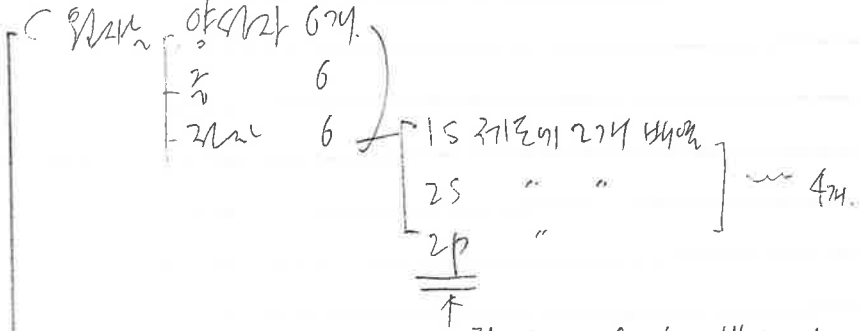 C 원자는 양성자 6개.
중 6
전자 6
1S 궤도에 2개 배열
2S " "
2p "
4개.